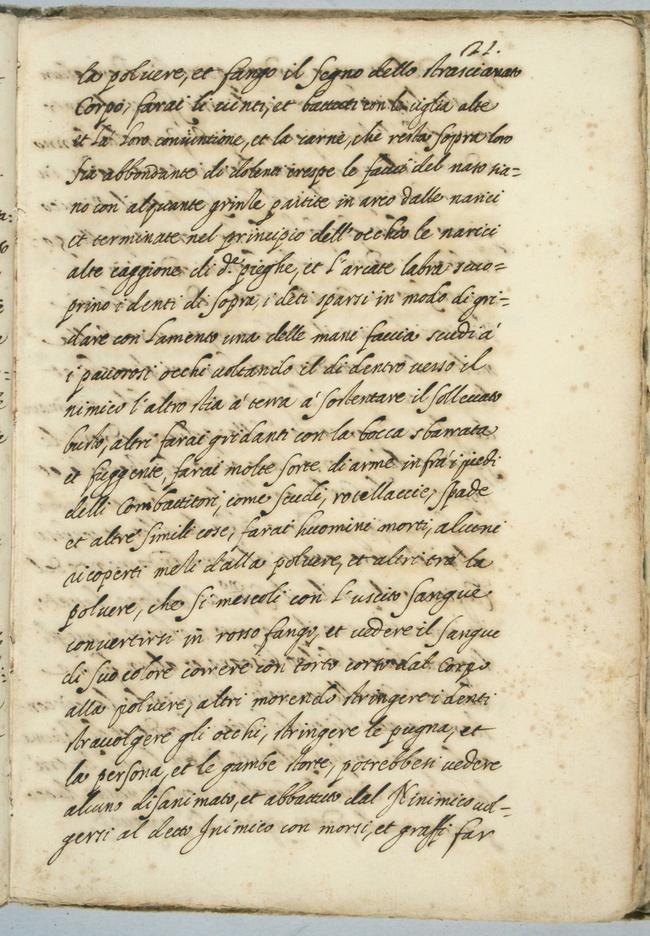 21.
la poluere, et fango il segno dello strascianato
Corpo, farai li uenti, et battuti con le ciglia alte
et la loro conuintione, et la carne, che resta sopra loro
sia abbondante di dolenti crespe le faccie del naso sia=
no con alquante grinze partite in arco dalle narici
et terminate nel principio dell'occhio le narici
alte caggione di d.e pieghe, et l'arcate labra scuo=
prino i denti di sopra, i deti sparsi in modo di gri=
dare con lamento una delle mani faccia scudi à
i paurosi occhi uoltando il di dentro uerso il
nimico l'altro stia à terra à sostentare il solleuato
busto, altri farai gridanti con la bocca sbarrata
et fuggente, farai molte sorte di arme infrà i piedi
delli Combattitori, come scudi, rocellaccie, spade
et altre simili cose, farai huomini morti, alcuni
ricoperti mezi dalla poluere, et altri trà la
poluere, che si mescoli con l'uscito sangue
conuertirsi in rosso fango, et uedere il sangue
di suo colore correre con torto corso dal Corpo
alla poluere, altri morendo stringere i denti
strauolgere gli occhi, stringere le pugna, et
la persona, et le gambe storte, potrebbesi uedere
alcuno disanimato, et abbattuto dal Ninimico uol=
gersi al detto Inimico con morsi, et graffi far